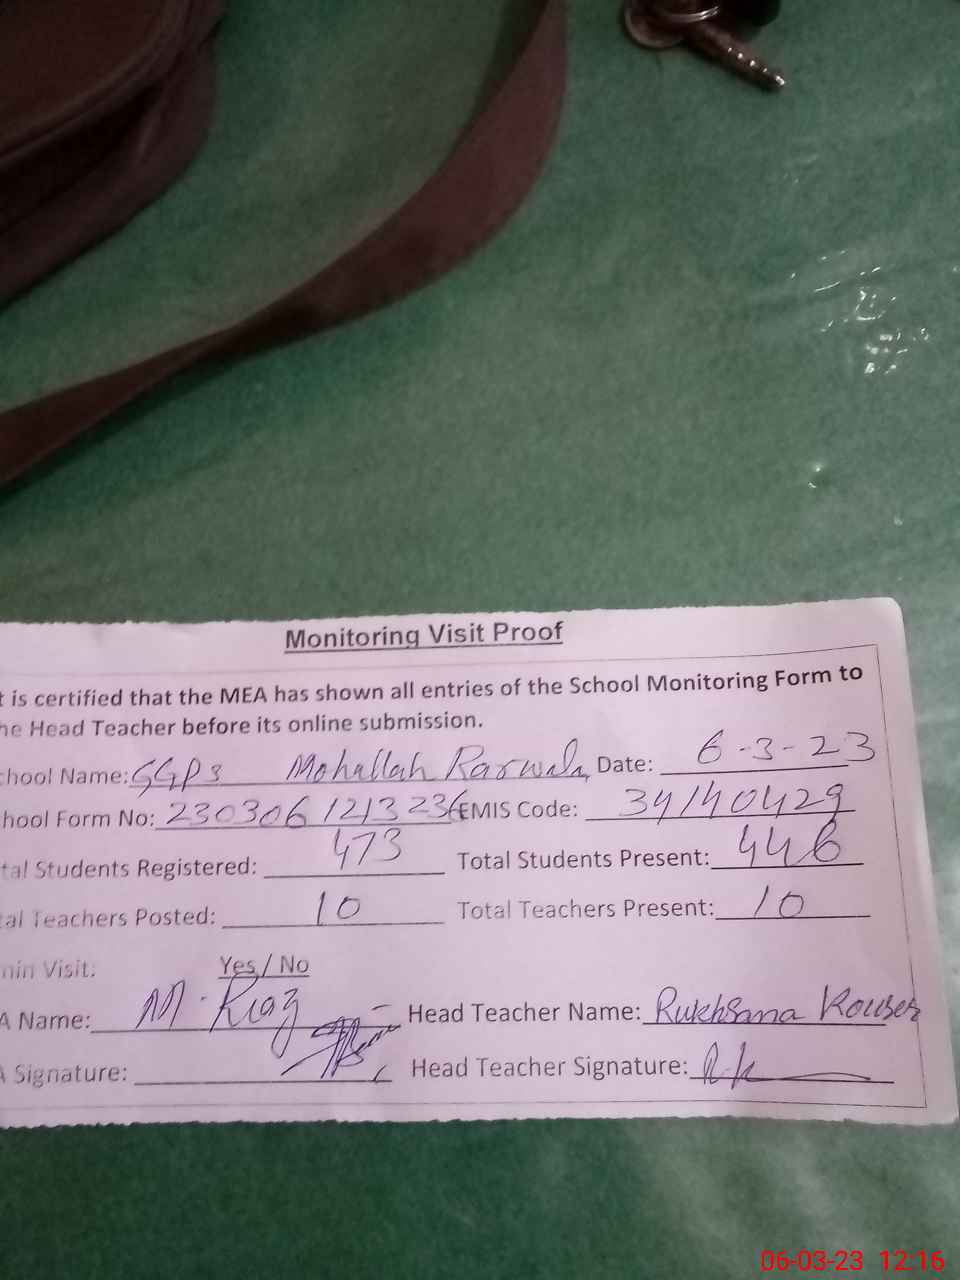 Monitoring Visit Proof
t is certified that the MEA has shown all entries of the School Monitoring Form to
he Head Teacher before its online submission.
chool Name: GGPS Mohallah Rarwala Date: 6-3-23
hool Form No: 230306121323 EMIS Code: 34140429
tal Students Registered: 473 Total Students Present: 446
al Teachers Posted: 10 Total Teachers Present: 10
min Visit: Yes / No
A Name: M. Riaz Head Teacher Name: Rukhsana Kouser
A Signature: Head Teacher Signature: R.k
06-03-23 12:16